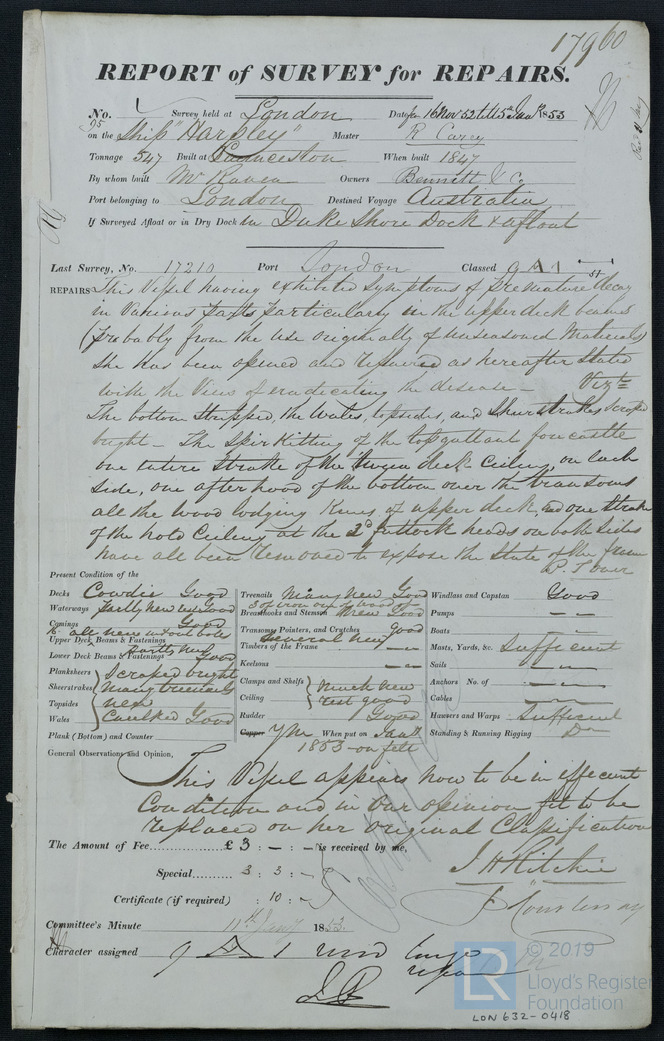 17960
REPORT of SURVEY for REPAIRS.
No. Survey held at London Date, from 16 Nov 52 till 5th Jany 1853
95 on the Ship "Harpley" Master R Carey
Tonnage 547 Built at Launceston When built 1847
By whom built Mr Raven Owners Bennett & Co
Port belonging to London Destined Voyage Australia
If Surveyed Afloat or in Dry Dock In Duke Shore Dock & afloat
Last Survey, No. 17210 Port London Classed 9 A 1 51
REPAIRS This Vessel having exhibited Symptoms of premature decay
in Various parts particularly in the upper deck beams
(probably from the use originally of unseasoned Materials)
She has been opened and repaired as hereafter Stated
with the View of eradicating the disease - Vizt
The bottom Stripped, the Wales, topsides, and Sheerstrakes scraped
bright - The Spirkitting of the topgallant forecastle
one entire Strake of the tween deck Ceiling, on each
side, one afterhood of the bottom over the transoms
all the Wood lodging Knees of upper deck, and one Strake
of the hold Ceiling at the 2d futtock heads on both Sides
have all been removed to expose the State of the frame
P. T. over
Present Condition of the
Decks Cowdie Good
Waterways partly new Good
Comings Good
Upper Deck Beams & Fastenings all new
Lower Deck Beams & Fastenings Partly New Good
Plansheers Scraped bright
Sheerstrakes many treenails
Topsides new
Wales Caulked Good
Plank (Bottom) and Counter
Treenails Many new Good
Breasthooks and Stemson New Good
Transoms, Pointers, and Crutches Several new good
Timbers of the Frame
Keelsons
Clamps and Shelfs Much new
Ceiling rest good
Rudder Good
Copper YM When put on Jany
1853 on felt
Windlass and Capstan Good
Pumps
Boats
Masts, Yards, &c. Sufficient
Sails
Anchors No. of
Cables
Hawsers and Warps Sufficient
Standing & Running Rigging Do
General Observations and Opinion,
This Vessel appears now to be in efficient
Condition and in our opinion fit to be
replaced on her original Classification
The Amount of Fee £3 : - : - is received by me,
Special 3 : 3 : -
Certificate (if required) : 10 : -
J H Ritchie
J Courtenay
Committee's Minute 11th Jany 1853
Character assigned 9 A 1
© 2019
LR Lloyd's Register
Foundation
LON 632-0418